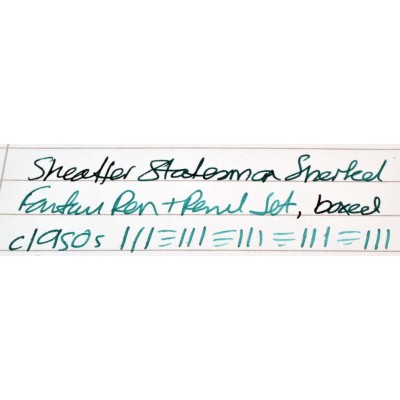 Sheaffer Statesman Snorkel
Fountain Pen + Pencil Set, boxed
c1950s